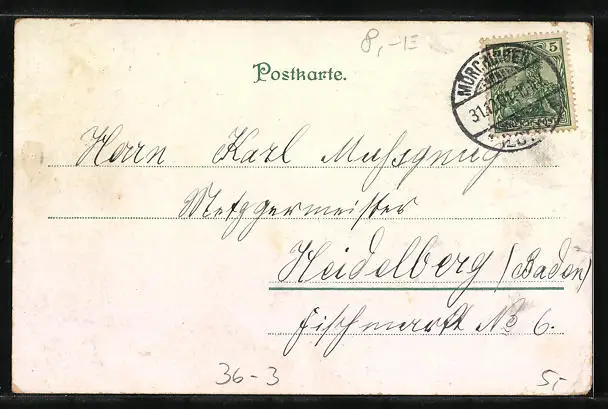 8,-E
5
MÖRCHINGEN
31.12.01
Postkarte.
Herrn Karl Mußgnug
Metzgermeister
Heidelberg (Baden)
Fischmarkt No 6.
36-3
5,-